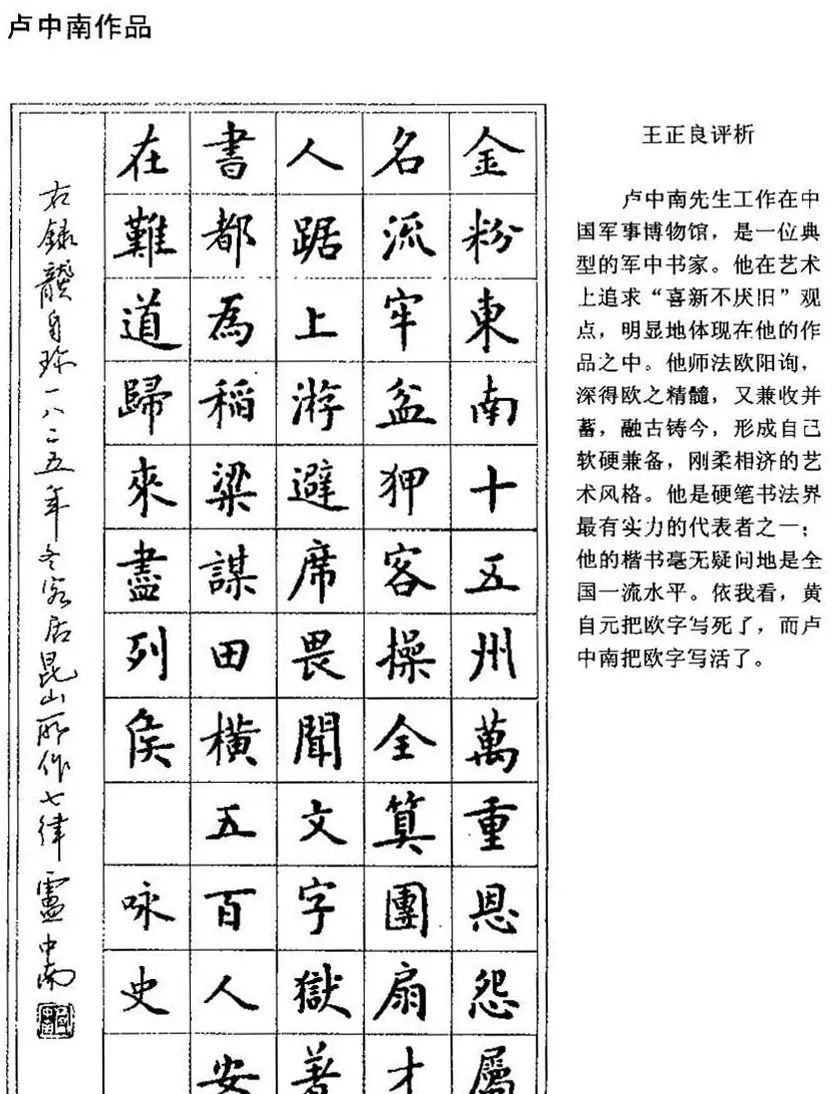 卢中南作品
金粉東南十五州萬重恩怨屬
名流牢盆狎客操全算團扇才
人踞上游避席畏聞文字獄著
書都為稻粱謀田橫五百人安
在難道歸來盡列侯 咏史
右録龔自珍一八二五年冬客居昆山所作七律 盧中南
王正良评析
卢中南先生工作在中
国军事博物馆，是一位典
型的军中书家。他在艺术
上追求“喜新不厌旧”观
点，明显地体现在他的作
品之中。他师法欧阳询，
深得欧之精髓，又兼收并
蓄，融古铸今，形成自己
软硬兼备，刚柔相济的艺
术风格。他是硬笔书法界
最有实力的代表者之一；
他的楷书毫无疑问地是全
国一流水平。依我看，黄
自元把欧字写死了，而卢
中南把欧字写活了。